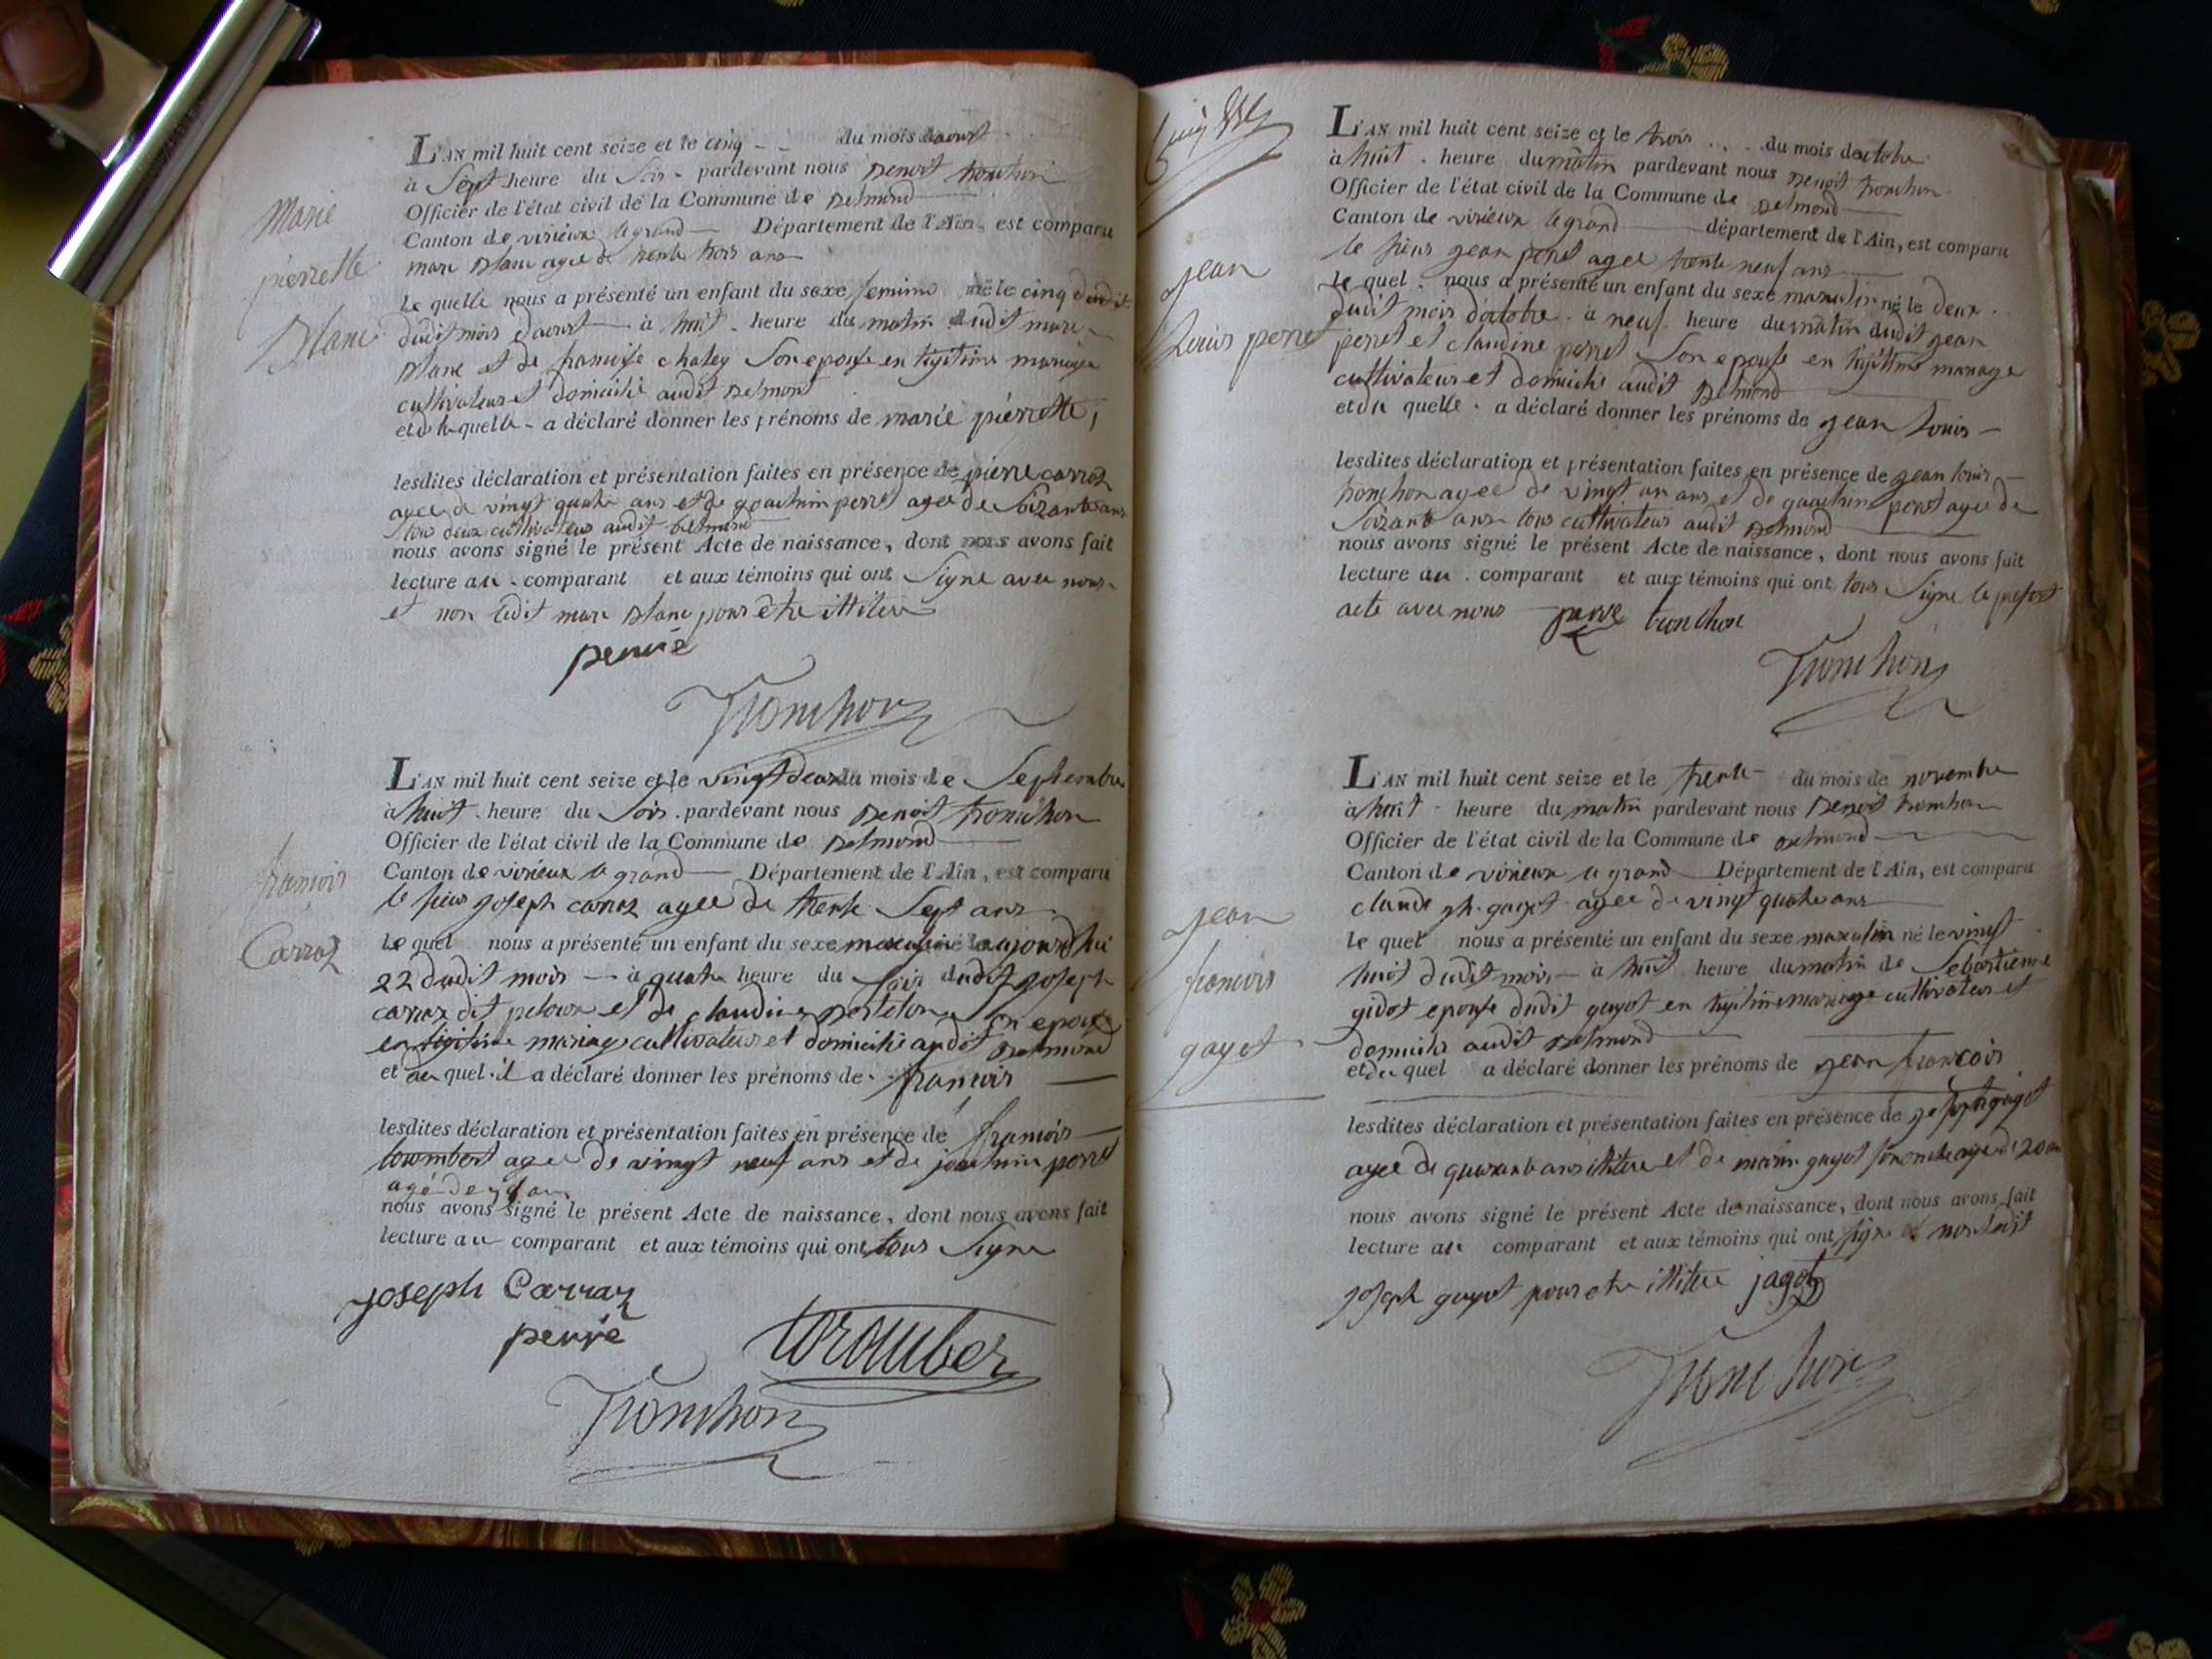 Marie
pierrette
Blanc
L'AN mil huit cent seize et le cinq du mois daoust
à Sept heure du Soir pardevant nous Benoit tronchon
Officier de l'état civil de la Commune de Belmond
Canton de virieux le grand Département de l'Ain, est comparu
marc Blanc agee de trente trois ans
le quelle nous a présenté un enfant du sexe feminin né le cinq dudit
dudit mois daoust à huit heure du matin dudit marc
Blanc et de francoise chaley Son epouse en legitime mariage
cultivateur et domicilié audit Belmont
et de laquelle a déclaré donner les prénoms de marie pierrette,
lesdites déclaration et présentation faites en présence de pierre carroz
agee de vingt quatre ans et de joachim perret agee de Soizante ans
tous deux cultivateurs audit belmond
nous avons signé le présent Acte de naissance, dont nous avons fait
lecture au comparant et aux témoins qui ont Signe avec nous
et non ledit marc Blanc pour être illitere
perré
Tronchon
francois
Carroz
L'AN mil huit cent seize et le vingt deux du mois de Septembre
à huit heure du Soir pardevant nous Benoit tronchon
Officier de l'état civil de la Commune de Belmond
Canton de virieux le grand Département de l'Ain, est comparu
le sieur joseph carroz agee de trente Sept ans
le quel nous a présenté un enfant du sexe masculin né aujourdhui
22 dudit mois à quatre heure du Soir dudit joseph
carroz dit peloux et de claudine Son epouse
en legitime mariage cultivateur et domicilié audit Belmond
et du quel il a déclaré donner les prénoms de francois
lesdites déclaration et présentation faites en présence de francois
agee de vingt neuf ans et de joachim perret
agé de
nous avons signé le présent Acte de naissance, dont nous avons fait
lecture au comparant et aux témoins qui ont tous Signe
joseph Carraz
perré
Tronchon
jean
Louis perret
L'AN mil huit cent seize et le trois du mois doctobre
à huit heure du matin pardevant nous Benoit tronchon
Officier de l'état civil de la Commune de Belmond
Canton de virieux le grand département de l'Ain, est comparu
le sieur jean perret agee trente neuf ans
le quel nous a présenté un enfant du sexe masculin né le deux
dudit mois doctobre à neuf heure du matin dudit jean
perret et claudine perret Son epouse en legitime mariage
cultivateur et domicilié audit Belmond
et du quelle a déclaré donner les prénoms de jean Louis
lesdites déclaration et présentation faites en présence de jean louis
tronchon agee de vingt un ans et de joachim perret agee de
Soizante ans tous cultivateurs audit Belmond
nous avons signé le présent Acte de naissance, dont nous avons fait
lecture au comparant et aux témoins qui ont tous Signe le present
acte avec nous tronchon
Tronchon
jean
francois
guyot
L'AN mil huit cent seize et le trente du mois de novembre
à huit heure du matin pardevant nous Benoit tronchon
Officier de l'état civil de la Commune de Belmond
Canton de virieux le grand Département de l'Ain, est comparu
claude guyot agee de vingt quatre ans
le quel nous a présenté un enfant du sexe masculin né le vingt
huit dudit mois à huit heure du matin de Sebastienne
gidot epouse dudit guyot en legitime mariage cultivateur et
domicilié audit Belmond
et du quel a déclaré donner les prénoms de jean francois
lesdites déclaration et présentation faites en présence de joseph guyot
agee de quarante ans illitere et de guyot agee de 20 ans
nous avons signé le présent Acte de naissance, dont nous avons fait
lecture au comparant et aux témoins qui ont signe et non ledit
joseph guyot pour etre illitere
Tronchon